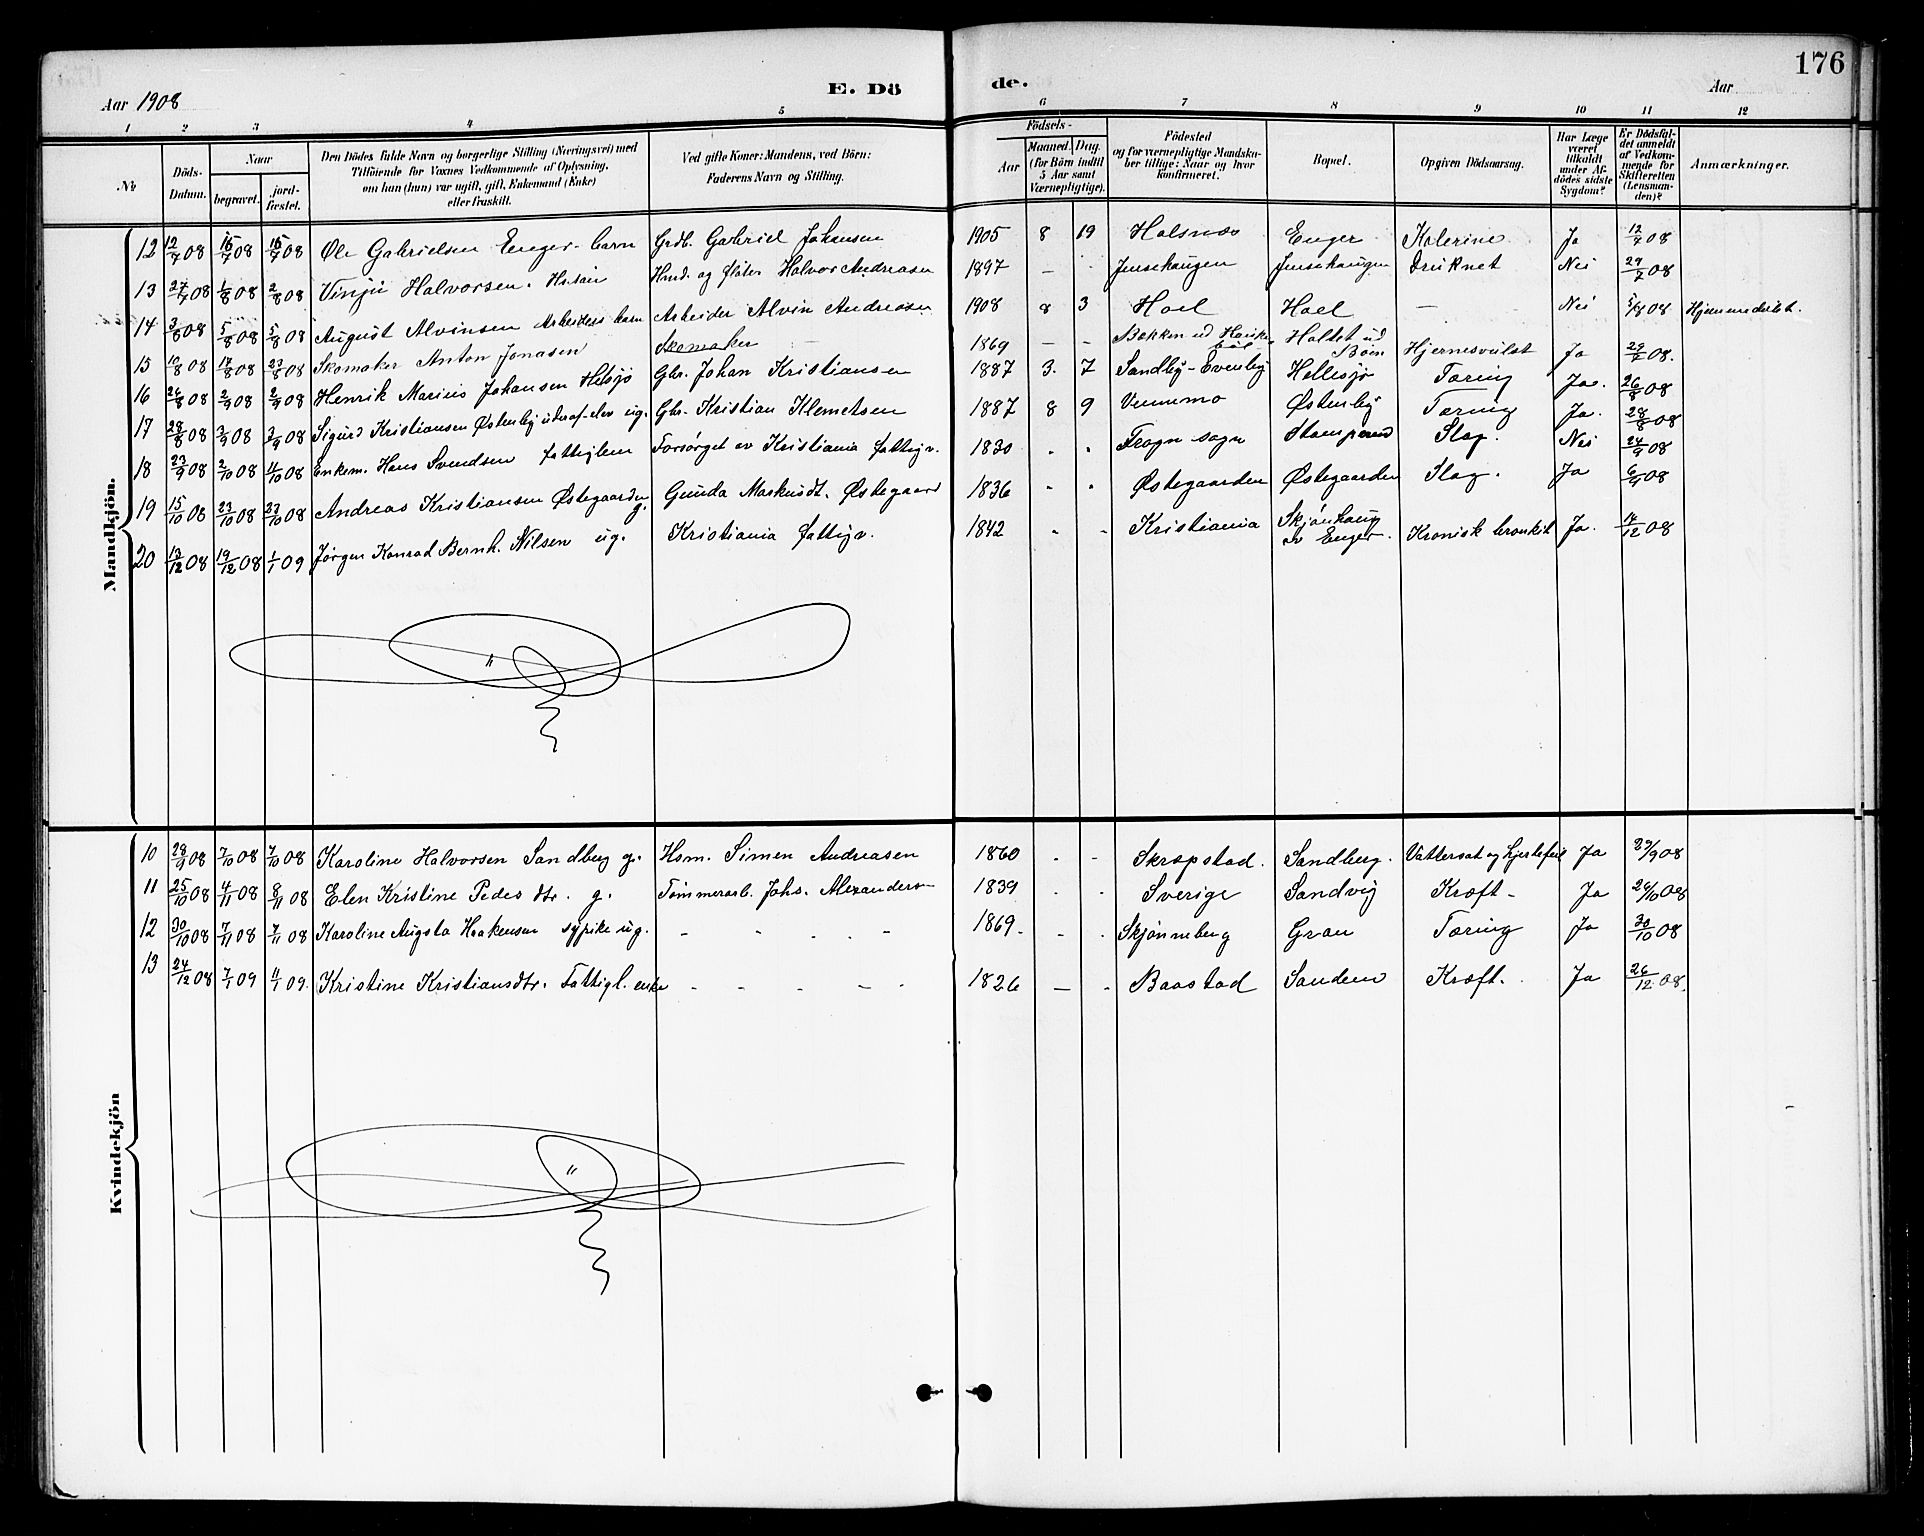 176
Aar 1908
E. Dö
de.
Aar
1 2 3 4 5 6 7 8 9 10 11 12
No
Döds-Datum.
Naar
begravet.
jord-fæstet.
Den Dödes fulde Navn og borgerlige Stilling (Næringsvei) med Tilföiende for Voxnes Vedkommende af Oplysning, om han (hun) var ugift, gift, Enkemand (Enke) eller fraskilt.
Ved gifte Koner: Mandens, ved Börn: Faderens Navn og Stilling.
Födsels-
Aar
Maaned. Dag.
(for Börn indtil 5 Aar samt Værnepligtige).
Födested og for værnepligtige Mandskaber tillige: Naar og hvor konfirmeret.
Bopæl.
Opgiven Dödsaarsag.
Har Læge været tilkaldt under Afdödes sidste Sygdom?
Er Dödsfaldet anmeldt af Vedkommende for Skifteretten (Lensmanden)?
Anmærkninger.
Mandkjön.
12 12/7 08 16/7 08 16/7 08 Ole Gabrielsen Enger. barn Grdb. Gabriel Johansen 1905 8 19 Holsnæs Enger Kolerine Ja 12/7 08
13 27/7 08 1/8 08 2/8 08 Vinju Halvorsen. Halvor Andreasen 1897 - Jensehaugen Jensehaugen Druknet Nei 29/7 08
14 3/8 08 5/8 08 5/8 08 August Alvinsen Arbeiders barn Arbeider Alvin Andreasen 1908 8 3 Hoel Hoel - Nei 5/8 08 Hjemmedøbt.
15 10/8 08 17/8 08 23/8 08 Skomaker Anton Jonasen Skomaker - 1869 - - Bakken ud Holtet ud Böen Hjernesvulst Ja
16 26/8 08 2/9 08 2/9 08 Henrik Marius Johansen Helsjø Gbr. Johan Kristiansen 1887 3. 7 Sandby-Evenby Hellesjø Tæring Ja. 26/8 08
17 28/8 08 3/9 08 3/9 08 Sigurd Kristiansen Østenby ug. Gbr. Kristian Klemetsen 1887 8 9 Vennmo Østenby Tæring Ja. 28/8 08
18 23/9 08 2/10 08 4/10 08 Enkem. Hans Svendsen fattiglem Forsørget av Kristiania fattigv. 1830 Frogn sogn Stomperud Slag. Nei 24/9 08
19 15/10 08 23/10 08 23/10 08 Andreas Kristiansen Østegaarden g. Gunda Markusdt. Østegaard 1836 Østegaarden Østegaarden Slag. Ja
20 13/12 08 19/12 08 1/1 09 Jørgen Konrad Bernh. Nilsen ug. Kristiania fattigv. 1842 Kristiania Skjønhaug av Enger. Kronisk bronkit Ja. 14/12 08
Kvindekjön
10 28/9 08 7/10 08 7/10 08 Karoline Halvorsen Sandberg g. Hsm. Simen Andreasen 1860 Skrapstad. Sandberg. Vattersot og hjertefeil Ja 29/9 08
11 25/10 08 4/11 08 8/11 08 Elen Kristine Pedersdtr. g. Tømmerarb. Johs. Alexanders 1839 Sverige Sandvig Kræft - Ja 26/10 08
12 30/10 08 7/11 08 7/11 08 Karoline Augsta Haakensen sypike ug. 1869 - Skjønneberg Gran Tæring Ja 30/10 08
13 24/12 08 7/1 09 11/1 09. Kristine Kristiansdtr. Fattigl. enke 1826 - Baastad Sanden Kræft. Ja 26/12 08.